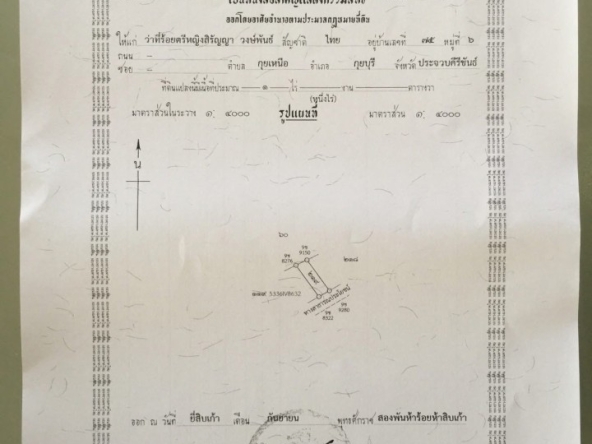 ออกโดยอาศัยอำนาจตามประมวลกฎหมายที่ดิน
ให้แก่ ว่าที่ร้อยตรีหญิงสิรัญญา วงษ์พันธ์ สัญชาติ ไทย อยู่บ้านเลขที่ ๗๕ หมู่ที่ ๖
ถนน –
ซอย – ตำบล กุยเหนือ อำเภอ กุยบุรี จังหวัด ประจวบคีรีขันธ์
ที่ดินแปลงนี้มีเนื้อที่ประมาณ ๑ ไร่ – งาน – ตารางวา
(หนึ่งไร่)
มาตราส่วนในระวาง ๑: ๔๐๐๐ รูปแผนที่ มาตราส่วน ๑: ๔๐๐๐
น
๖๐
9150
8976
5336IV8632
ทางสาธารณประโยชน์
8980
8922
ออก ณ วันที่ ยี่สิบเก้า เดือน กันยายน พุทธศักราช สองพันห้าร้อยห้าสิบเก้า